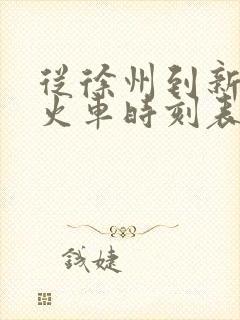 從徐州到新
火車時刻表
錢婕